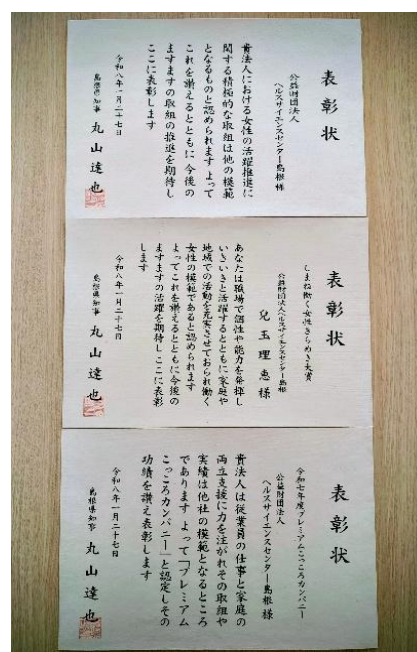 表彰状
公益財団法人
ヘルスサイエンスセンター島根 様
貴法人における女性の活躍推進に
関する積極的な取組は他の模範
となるものと認められます よって
これを讃えるとともに 今後の
ますますの取組の推進を期待し
ここに表彰します
令和八年一月二十七日
島根県知事 丸山達也
表彰状
しまね働く女性きらめき大賞
公益財団法人ヘルスサイエンスセンター島根
児玉理恵 様
あなたは職場で個性や能力を発揮し
いきいきと活躍するとともに家庭や
地域での活動を充実させておられ働く
女性の模範であると認められます
よってこれを讃えるとともに今後の
ますますの活躍を期待しここに表彰
します
令和八年一月二十七日
島根県知事 丸山達也
表彰状
令和七年度プレミアムこっころカンパニー
公益財団法人
ヘルスサイエンスセンター島根 様
貴法人は従業員の仕事と家庭の
両立支援に力を注がれその取組や
実績は他社の模範となるところ
であります よって「プレミアム
こっころカンパニー」と認定しその
功績を讃え表彰します
令和八年一月二十七日
島根県知事 丸山達也